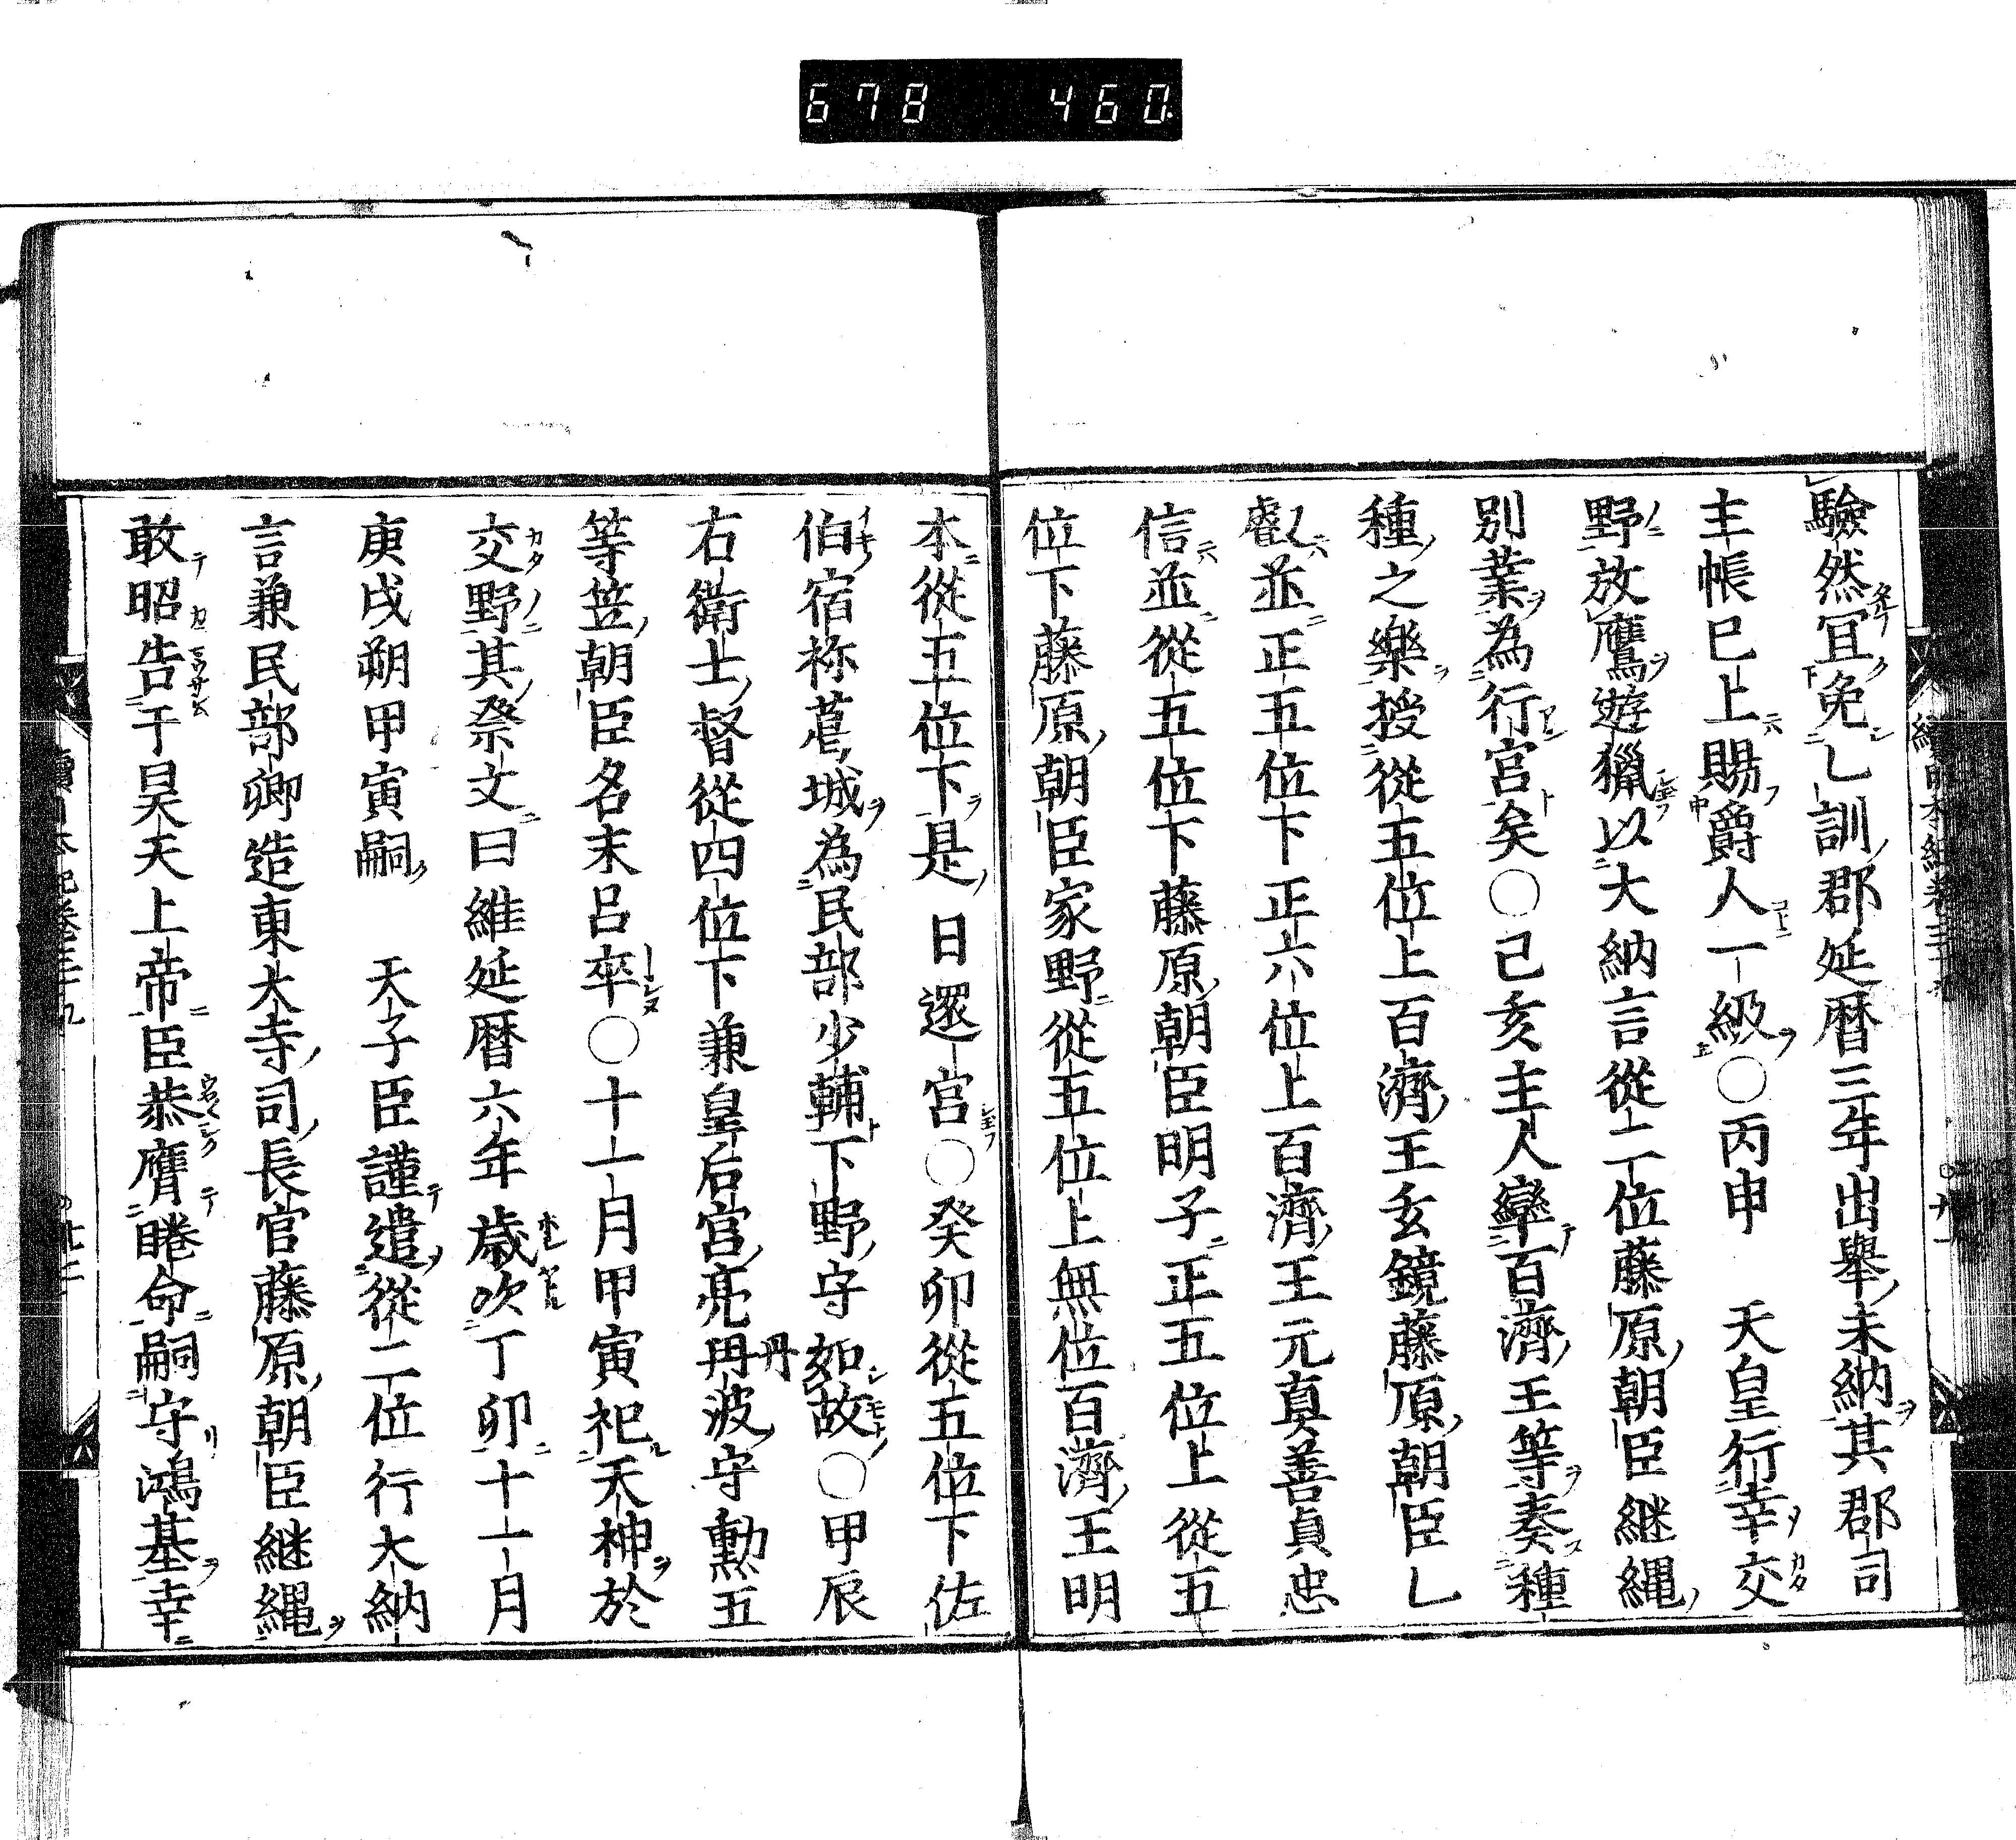 678 460
驗然冝免乙訓郡延暦三年出舉未納其郡司
主帳已上賜爵人一級○丙申 天皇行幸交
野放鷹遊獵以大納言從二位藤原朝臣継縄
別業為行宮矣○己亥主人率百濟王等奏種
種之樂授從五位上百濟王玄鏡藤原朝臣乙
叡並正五位下正六位上百濟王元真善貞忠
信並從五位下藤原朝臣明子正五位上從五
位下藤原朝臣家野從五位上無位百濟王明
本從五位下是 日還宮○癸卯從五位下佐
伯宿祢葛城為民部少輔下野守如故○甲辰
右衛士督從四位下兼皇后宮亮丹波守勲五
等笠朝臣名末呂卒○十一月甲寅祀天神於
交野其祭文曰維延暦六年歳次丁卯十一月
庚戌朔甲寅嗣 天子臣謹遣從二位行大納
言兼民部卿造東大寺司長官藤原朝臣継縄
敢昭告于昊天上帝臣恭膺睠命嗣守鴻基幸